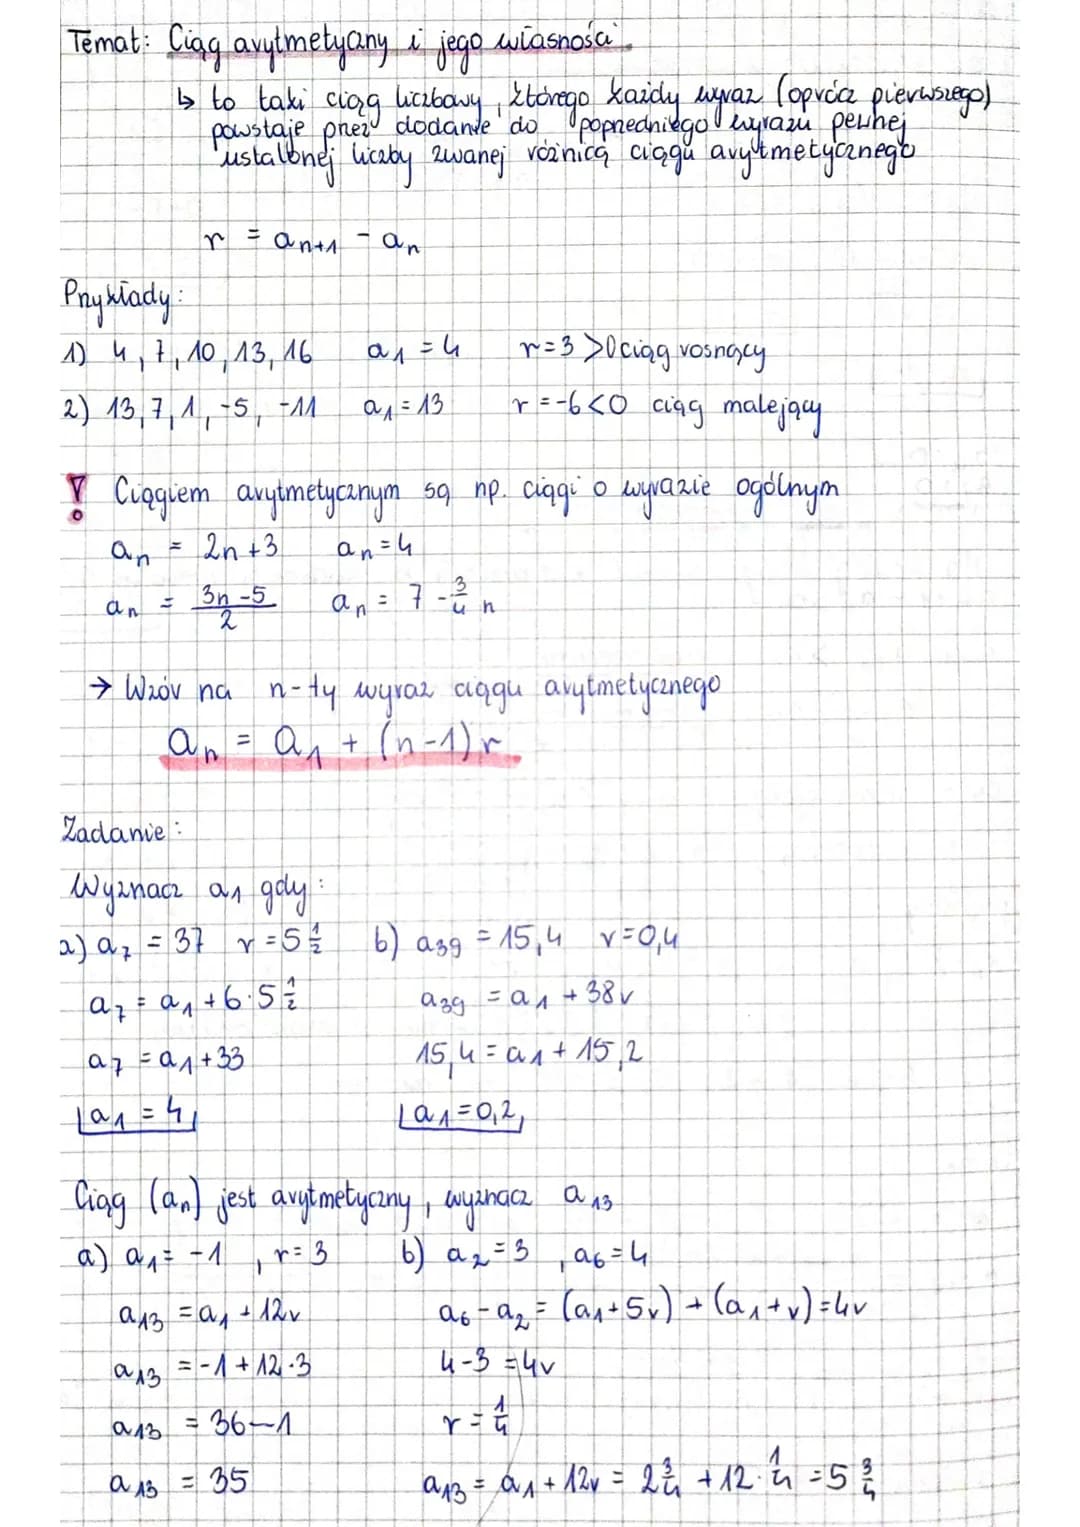 Temat: Ciąg arytmetyczny i jego własności.
↳ to taki ciąg liczbowy, którego każdy wyraz (oprócz pierwszego)
powstaje przez dodanie do poprzedniego wyrazu pewnej
ustalonej liczby zwanej różnicą ciągu arytmetycznego
r = aₙ₊₁ - aₙ
Przykłady:
1) 4, 7, 10, 13, 16 a₁ = 4 r=3 >0 ciąg rosnący
2) 13, 7, 1, -5, -11 a₁ = 13 r = -6<0 ciąg malejący
! Ciągiem arytmetycznym są np. ciągi o wyrazie ogólnym
aₙ = 2n+3 aₙ = 4
aₙ = (3n-5)/2 aₙ = 7 - 3/4 n
→ Wzór na n-ty wyraz ciągu arytmetycznego
aₙ = a₁ + (n-1) r
Zadanie:
Wyznacz a₁ gdy:
a) a₇ = 37 r = 5 1/2 b) a₃₉ = 15,4 r=0,4
a₇ = a₁ + 6·5 1/2 a₃₉ = a₁ + 38r
a₇ = a₁+33 15,4 = a₁ + 15,2
a₁ = 4 a₁=0,2
Ciąg (aₙ) jest arytmetyczny, wyznacz a₁₃
a) a₁ = -1, r=3 b) a₂ = 3, a₆ = 4
a₁₃ = a₁ + 12r a₆ - a₂ = (a₁+5r) + (a₁+r) = 4r
a₁₃ = -1 + 12·3 4-3 = 4r
a₁₃ = 36-1 r = 1/4
a₁₃ = 35 a₁₃ = a₁ + 12r = 2 3/4 + 12·1/4 = 5 3/4